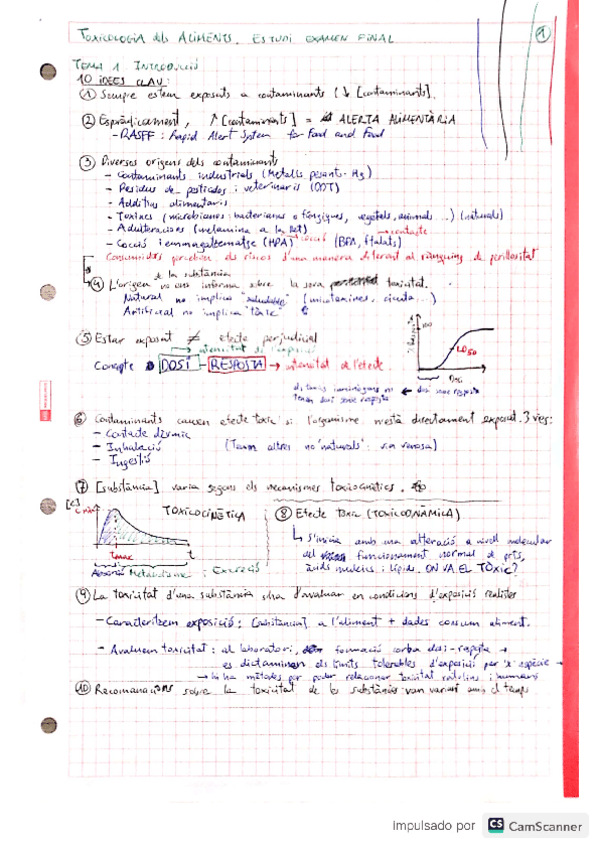 TOXICOLOGIA dels ALIMENTS. ESTUDI EXAMEN FINAL
1
TEMA 1 INTRODUCCIÓ
10 IDEES CLAU:
① Sempre estem exposats a contaminants (↓ [contaminants]).
② Esporàdicament, ↑ [contaminants] = ALERTA ALIMENTÀRIA
- RASFF: Rapid Alert System for Food and Feed
③ Diversos orígens dels contaminants
- Contaminants industrials (Metalls pesants - Hg)
- Residus de pesticides i veterinaris (DDT)
- Additius alimentaris
- Toxines (microbianes: bacterianes o fúngiques, vegetals, animals...) (naturals)
- Adulteracions (melamina a la llet)
- Cocció i emmagatzematge (HPA) → cocció (BPA, ftalats) → contacte
Consumidors perceben els riscos d'una manera diferent al rànquing de perillositat
④ L'origen de la substància no ens informa sobre la seva toxicitat.
Natural no implica "saludable" (micotoxines, cicuta...)
Artificial no implica "tòxic"
⑤ Estar exposat ≠ efecte perjudicial
Concepte DOSI - RESPOSTA → intensitat de l'efecte
100
LD50
Dosi
dosi resposta
⑥ Contaminants causen efecte tòxic si l'organisme està directament exposat. 3 vies:
- Contacte dèrmic
- Inhalació
- Ingestió
(Tenim altres no "naturals": via venosa)
⑦ [substància] varia segons els mecanismes toxicocinètics.
[C]
C màx
TOXICOCINÈTICA
tmax
t
Absorció Metabolisme i Excreció
⑧ Efecte tòxic (TOXICODINÀMICA)
↳ S'inicia amb una alteració a nivell molecular
del funcionament normal de prts,
àcids nucleics i lípids. ON VA EL TÒXIC?
⑨ La toxicitat d'una substància s'ha d'avaluar en condicions d'exposició realistes
- Caracteritzem exposició: [substància] a l'aliment + dades consum aliment.
- Avaluem toxicitat: al laboratori, formació corba dosi-resposta →
es dictaminen els límits tolerables d'exposició per "x" espècie →
→ hi ha mètodes per poder relacionar toxicitat ratolins i humans
⑩ Recomanacions sobre la toxicitat de les substàncies van variant amb el temps
Impulsado por CS CamScanner